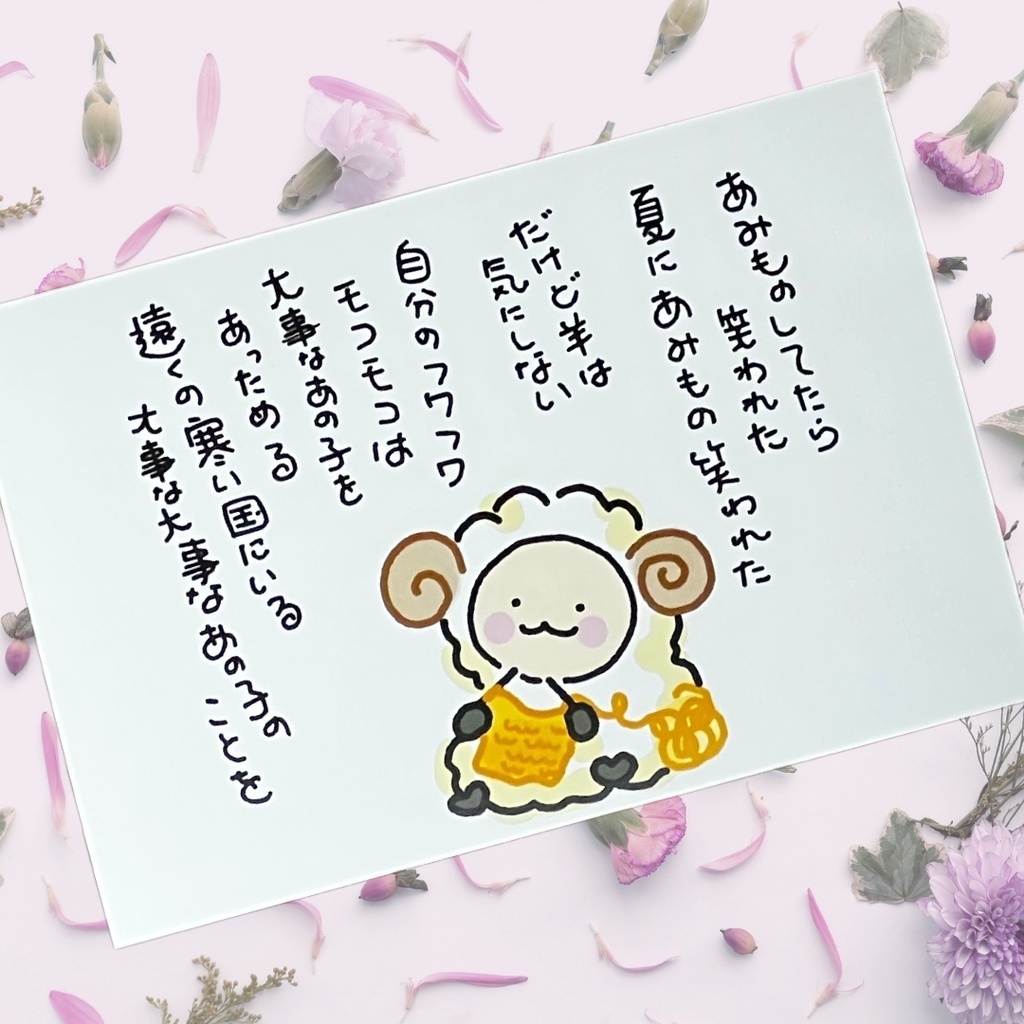 あみものしてたら
笑われた
夏にあみもの笑われた
だけど羊は
気にしない
自分のフワフワ
モコモコは
大事なあの子を
あっためる
遠くの寒い国にいる
大事な大事なあの子の
ことを